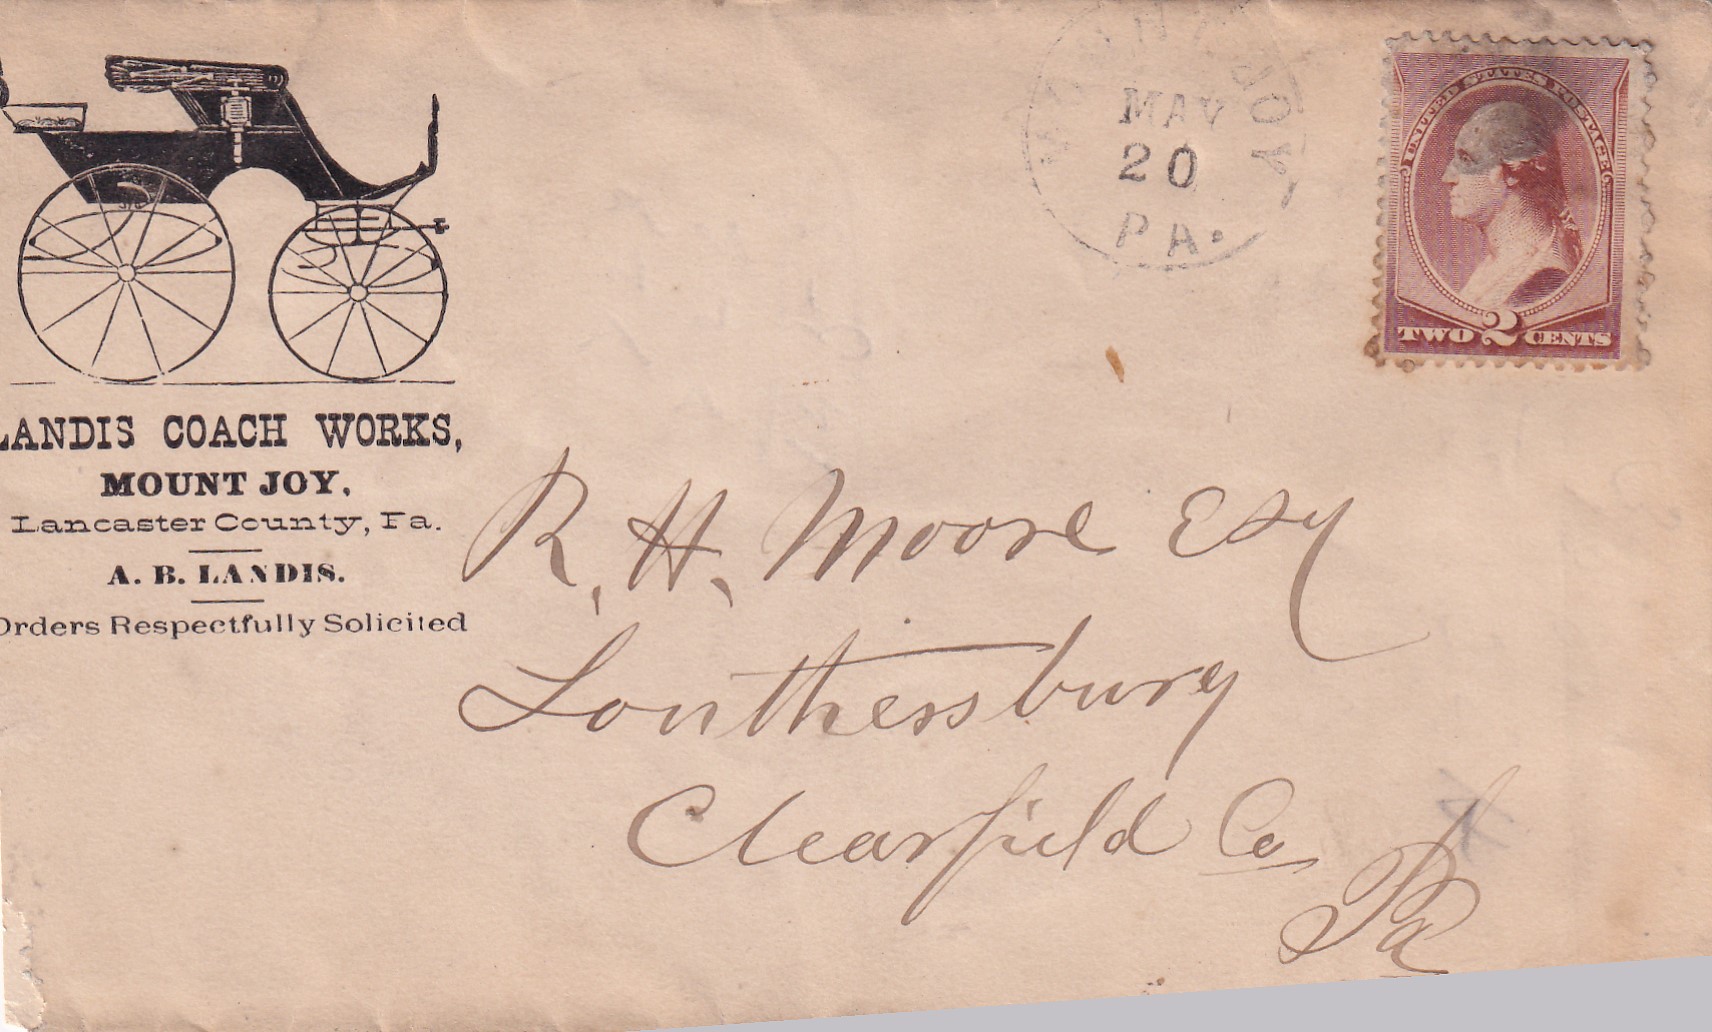 LANDIS COACH WORKS,
MOUNT JOY,
Lancaster County, Pa.
A. B. LANDIS.
Orders Respectfully Solicited
MOUNT JOY
MAY
20
PA.
UNITED STATES POSTAGE
TWO 2 CENTS
R. H. Moore Esq
Louthersburg
Clearfield Co
Pa